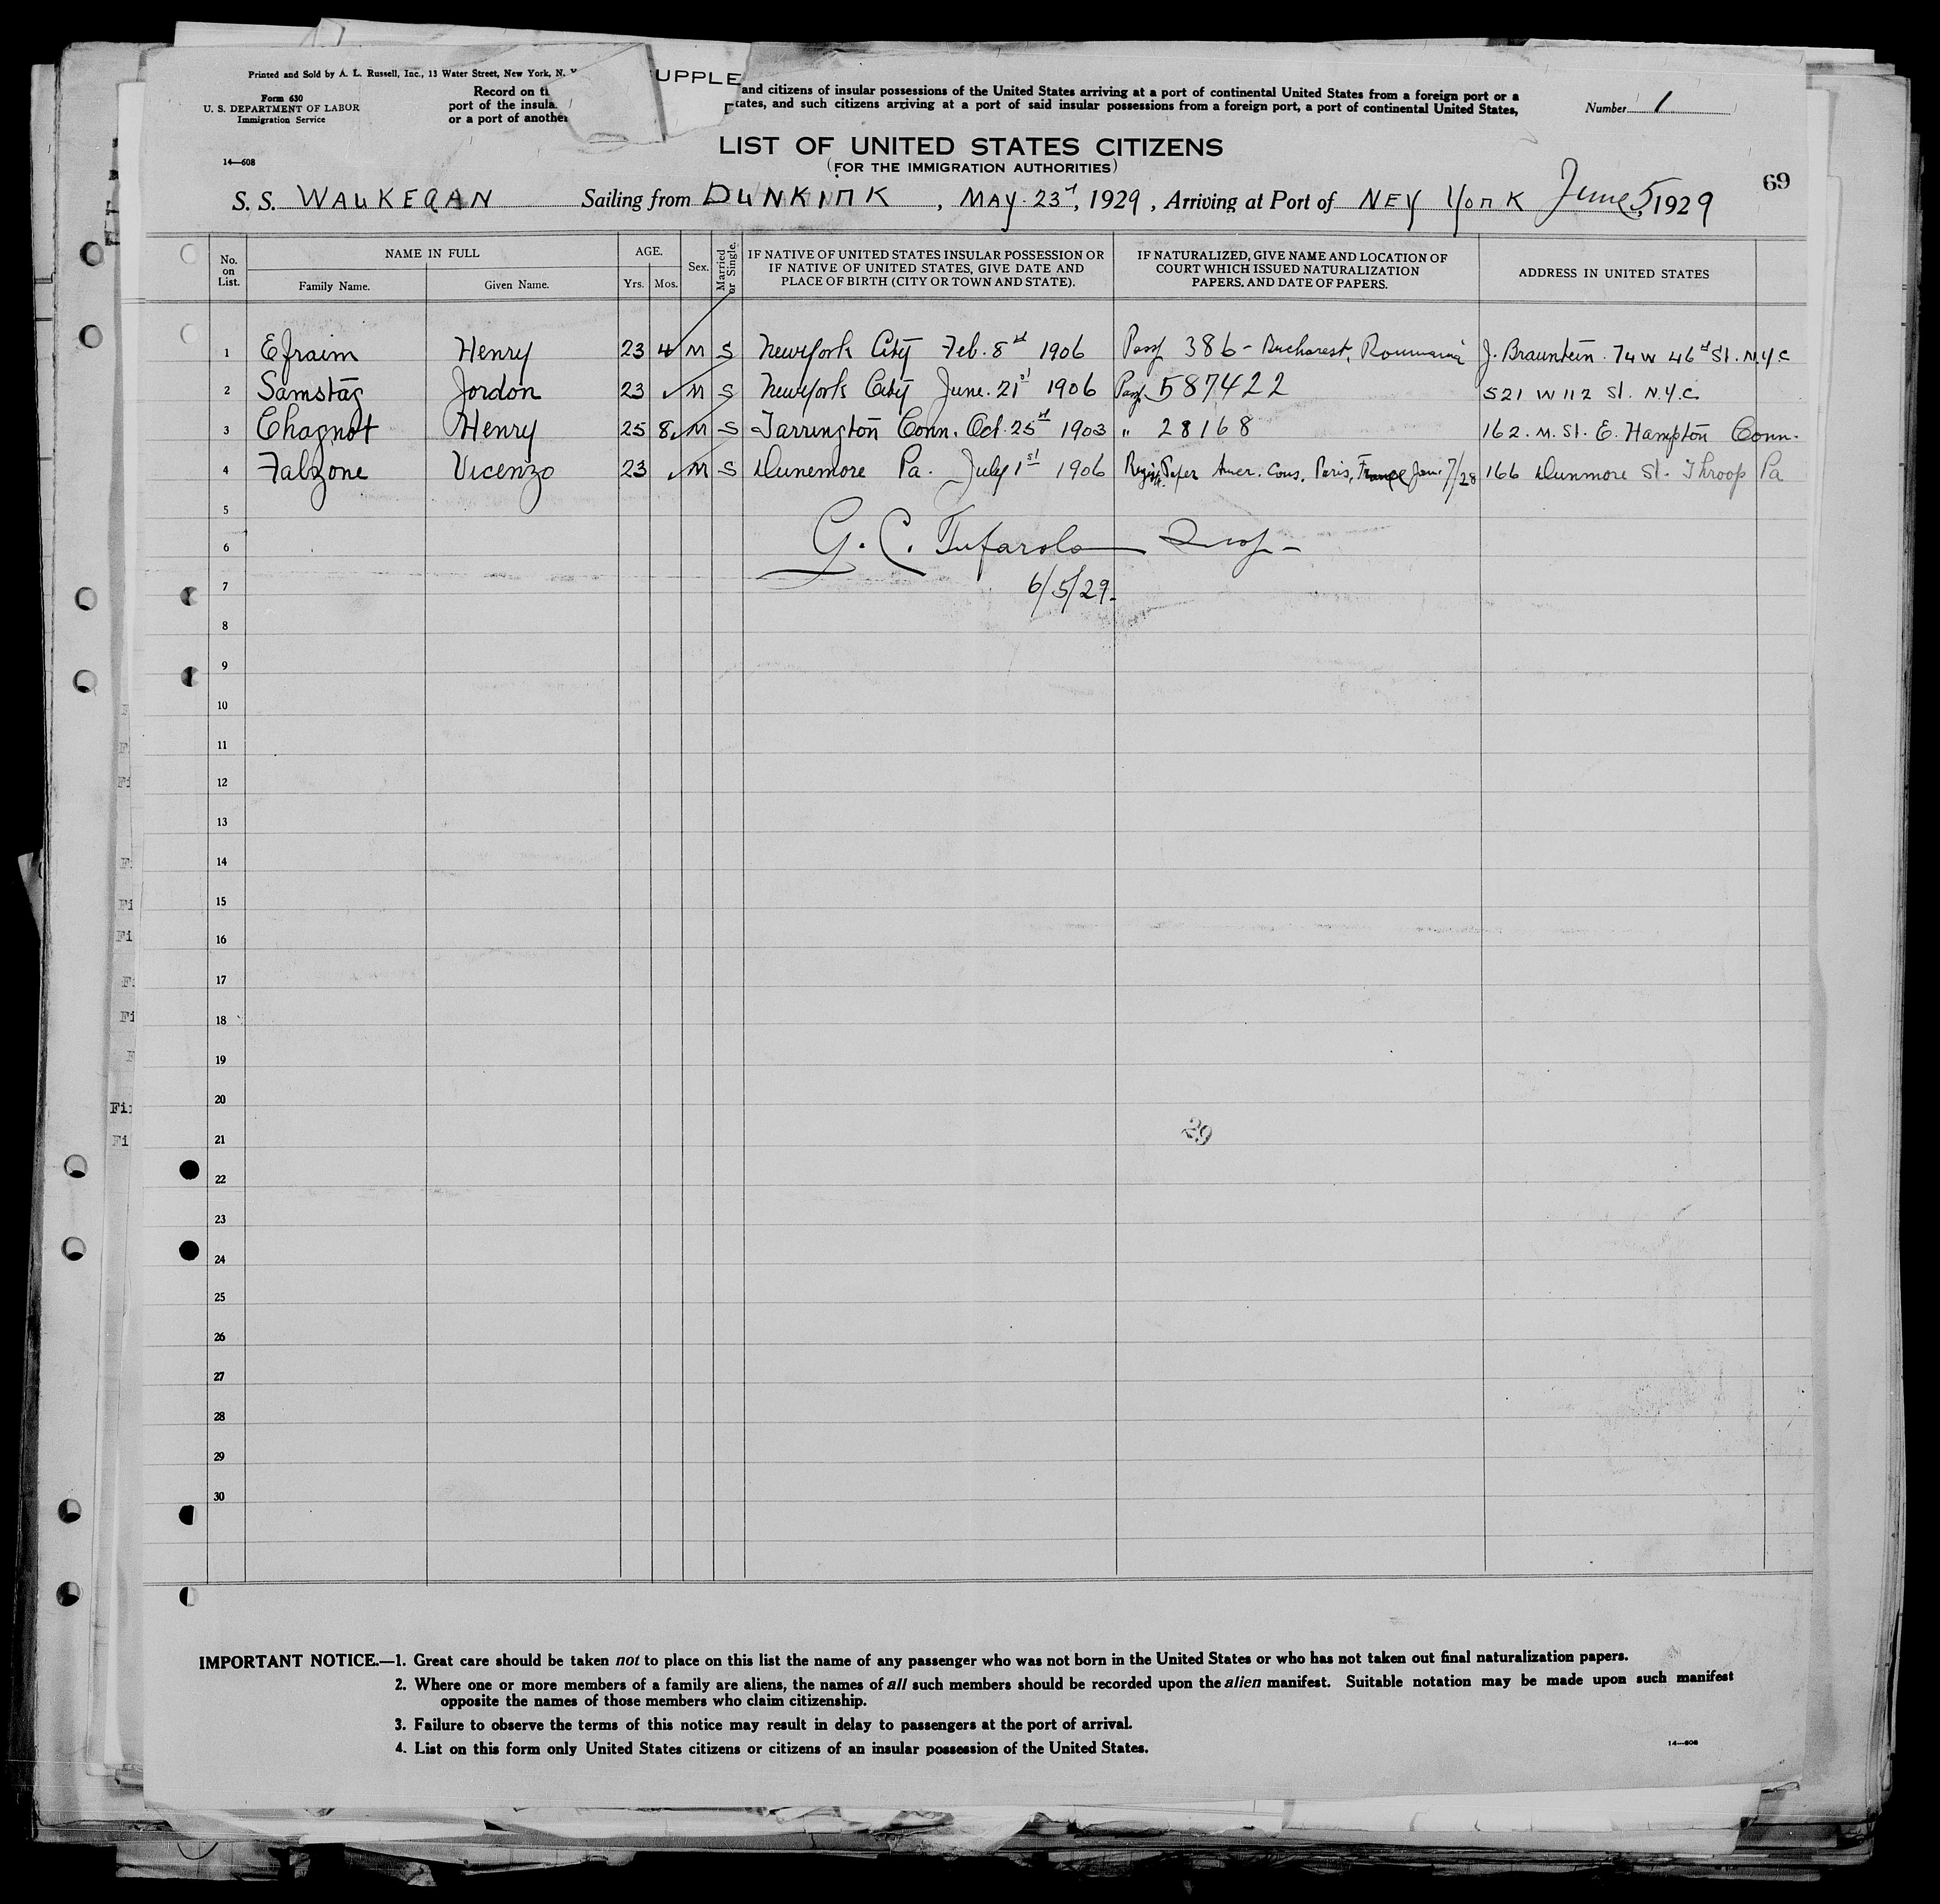 Printed and Sold by A. L. Russell, Inc., 13 Water Street, New York, N. Y
UPPLE
Form 630
U. S. DEPARTMENT OF LABOR
Immigration Service
14—608
Record on th
port of the insula
or a port of another
and citizens of insular possessions of the United States arriving at a port of continental United States from a foreign port or a
tates, and such citizens arriving at a port of said insular possessions from a foreign port, a port of continental United States,
Number 1
LIST OF UNITED STATES CITIZENS
(FOR THE IMMIGRATION AUTHORITIES)
69
S. S. WAUKEGAN Sailing from DUNKIRK, MAY 23d, 1929, Arriving at Port of NEY YORK June 5, 1929
No. on List. NAME IN FULL Family Name. Given Name. AGE. Yrs. Mos. Sex. Married or Single. IF NATIVE OF UNITED STATES INSULAR POSSESSION OR IF NATIVE OF UNITED STATES, GIVE DATE AND PLACE OF BIRTH (CITY OR TOWN AND STATE). IF NATURALIZED, GIVE NAME AND LOCATION OF COURT WHICH ISSUED NATURALIZATION PAPERS, AND DATE OF PAPERS. ADDRESS IN UNITED STATES
1 Efraim Henry 23 4 M S New York City Feb. 8 1906 Pass 386 - Bucharest, Roumania J. Brauntein 74 W 46 St. N.Y.C
2 Samstag Jordon 23 M S New York City June. 21st 1906 Pass. 587422 521 W 112 St. N.Y.C.
3 Chagnot Henry 25 8 M S Tarrington Conn. Oct. 25 1903 " 28168 162. M. St. E. Hampton Conn.
4 Falzone Vicenzo 23 M S Dunemore Pa. July 1st 1906 Paper Amer. Cons. Paris, France 7/28 166 Dunmore St. Throop Pa
5
G. C. Tufarolo Insp-
6
6/5/29.
7
8
9
10
11
12
13
14
15
16
17
18
19
20
29
21
22
23
24
25
26
27
28
29
30
IMPORTANT NOTICE.—1. Great care should be taken not to place on this list the name of any passenger who was not born in the United States or who has not taken out final naturalization papers.
2. Where one or more members of a family are aliens, the names of all such members should be recorded upon the alien manifest. Suitable notation may be made upon such manifest
opposite the names of those members who claim citizenship.
3. Failure to observe the terms of this notice may result in delay to passengers at the port of arrival.
4. List on this form only United States citizens or citizens of an insular possession of the United States.
14—608